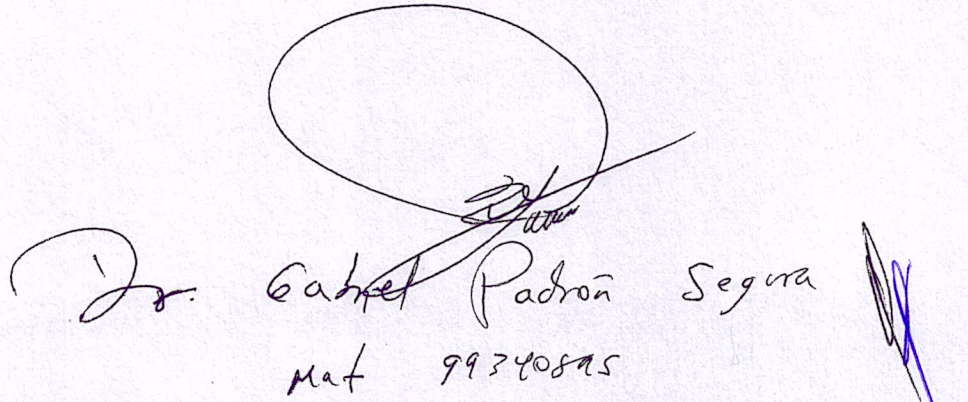 Dr. Gabriel Padrón Segura
Mat 99340895